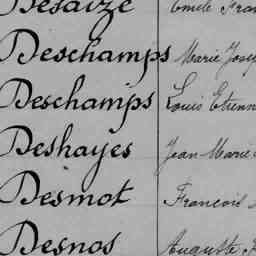 Desaize Emile Fran
Deschamps Marie Josep
Deschamps Louis Etienn
Deshayes Jean Marie
Desmot Francois
Desnos Auguste